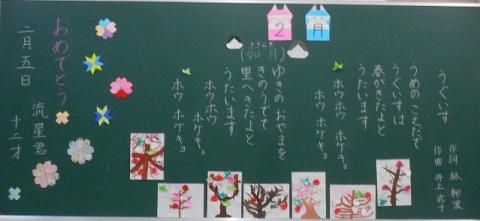 2月
(如月)
きさらぎ
うぐいす
作詞 林 柳波
作曲 井上 武士
うめの こえだで
うぐいすは
春がきたよと
うたいます
ホウ ホウ ホケキョ
ホウ ホケキョ
ゆきの おやまを
きのうでて
里へきたよと
うたいます
ホウ ホウ ホケキョ
ホウ ホケキョ
おめでとう
二月五日
流星君
十二才